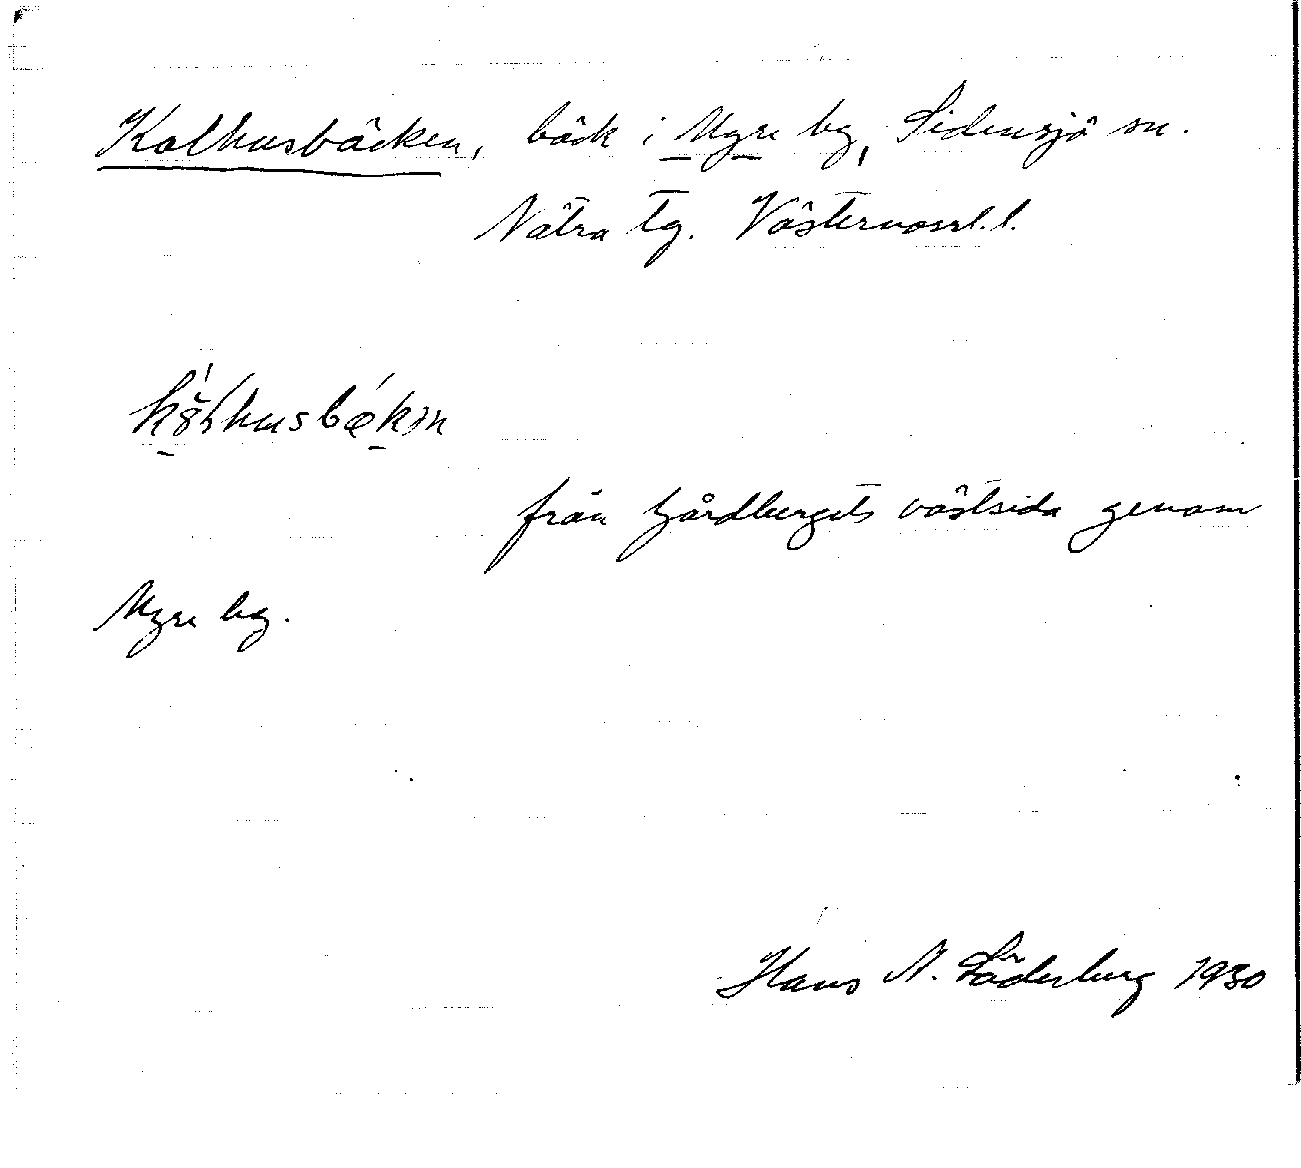 Kolhusbäcken, bäck i Myre by, Sidensjö sn.
Nätra tg. Västernorrl. l.
från Gårdbergets västsida genom
Myre by.
Hans N. Söderberg 1930